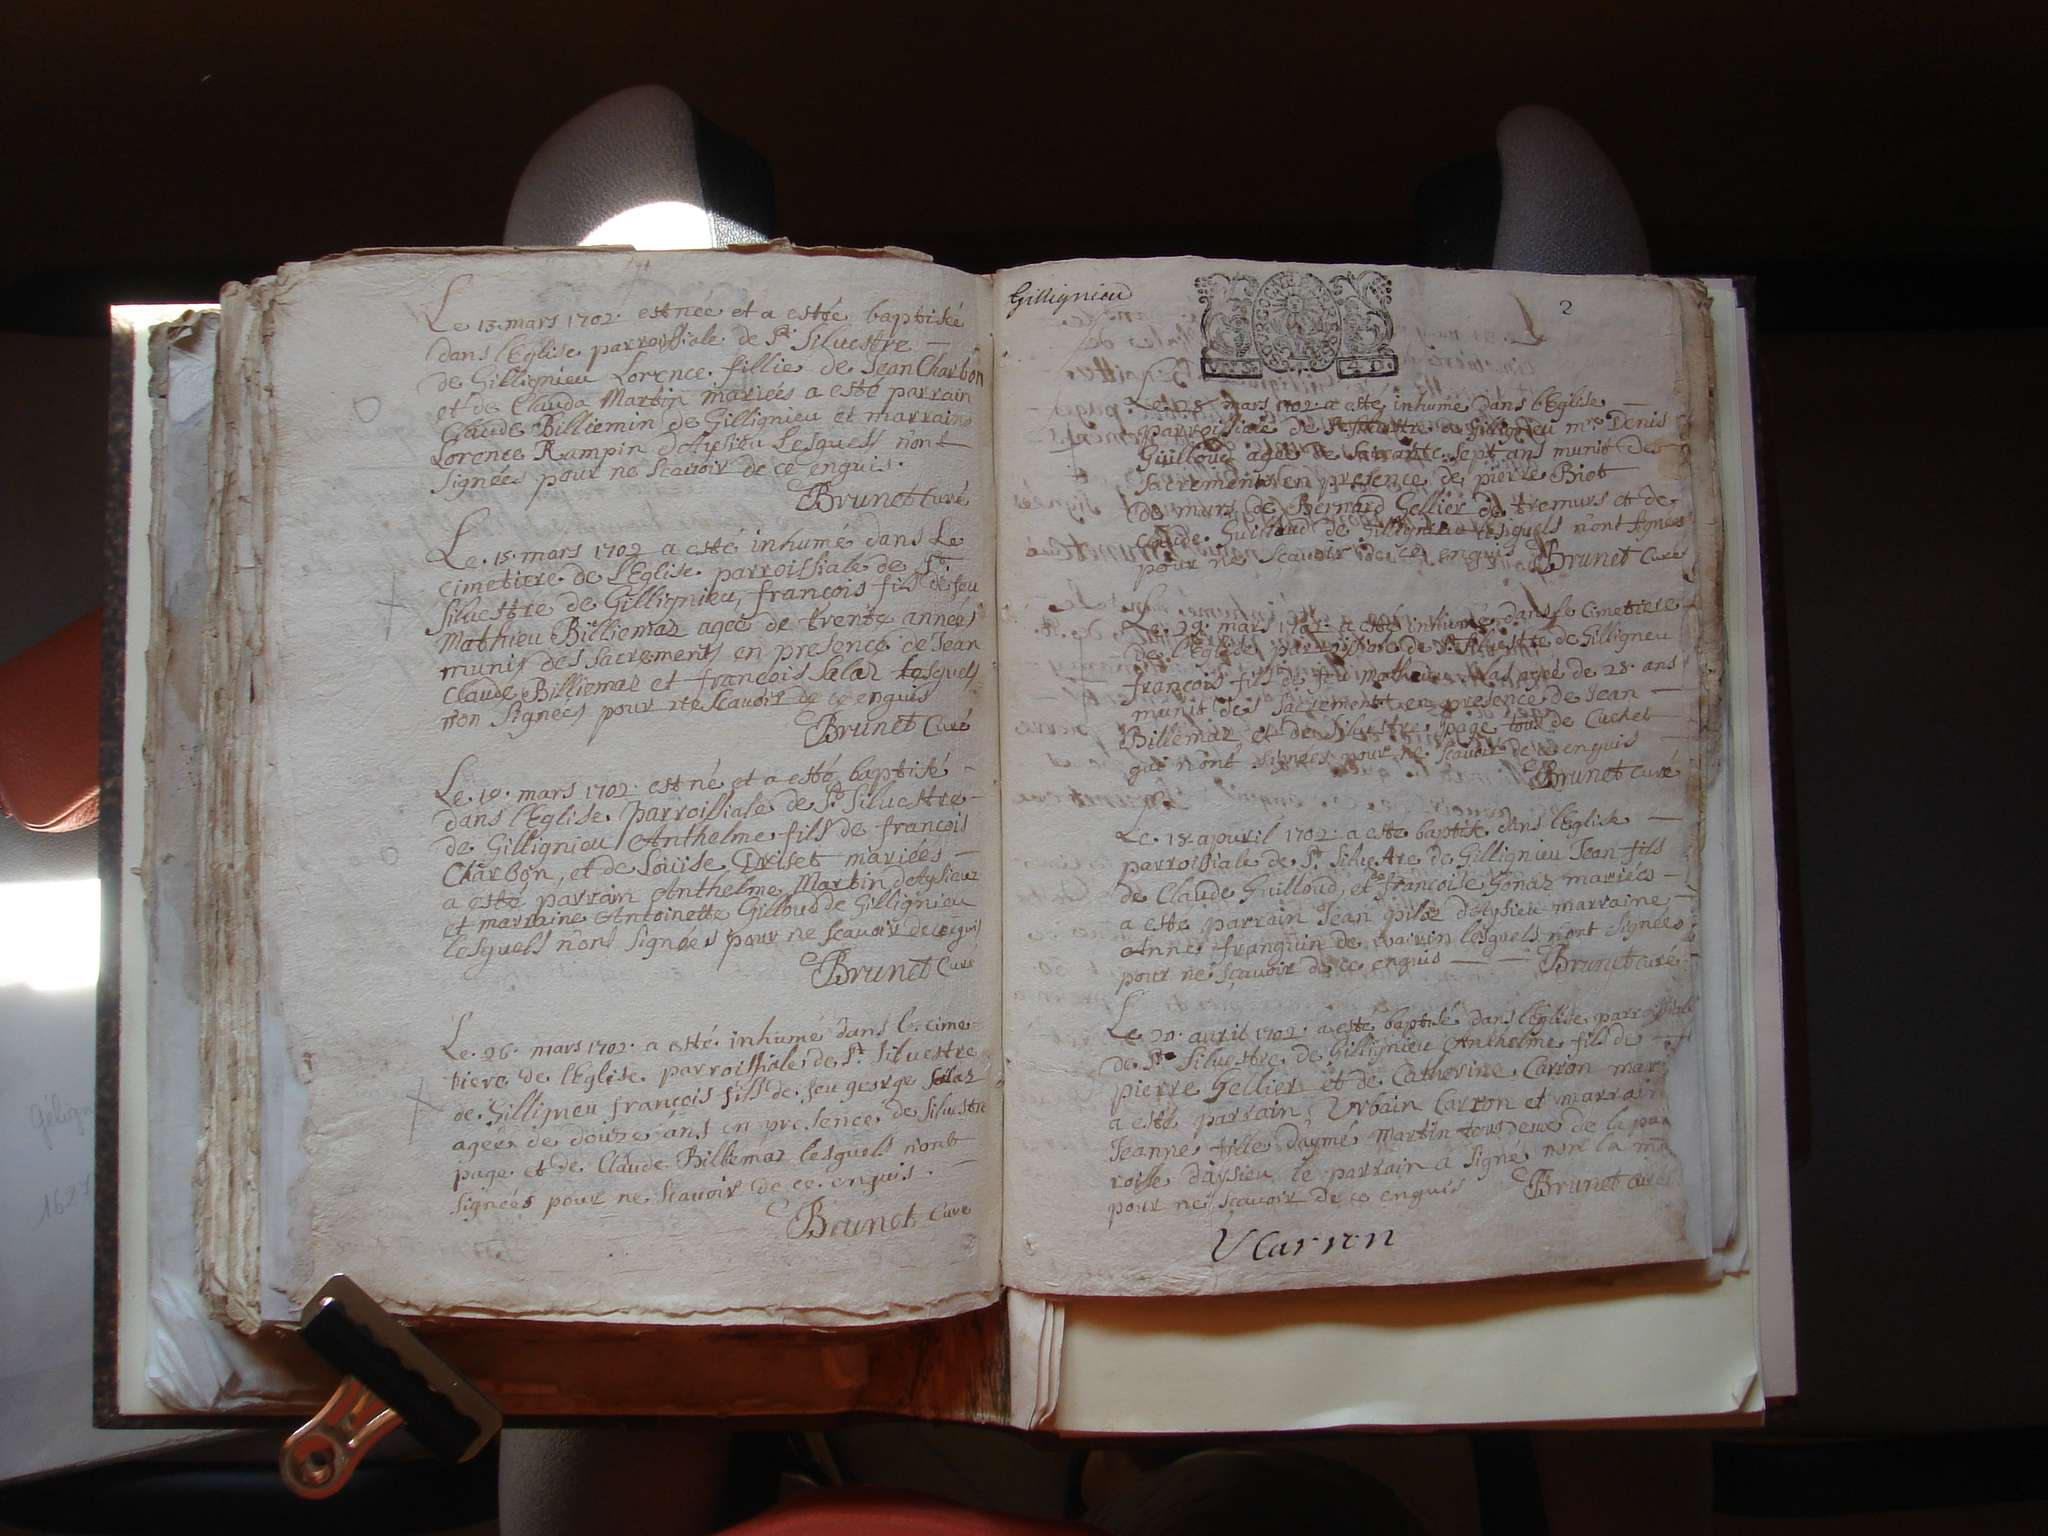 Le 13 mars 1702 est née et a esté baptisée
dans l'Eglise parroissiale de St Siluestre
de Gillignieu Lorence fillie de Jean Charbon
et de Clauda Martin mariéés a esté parrain
Claude Billiemin de Gillignieu et marraine
Lorence Rampin d'Aysieu Lesquels nont
signéés pour ne scauoir de ce enquis.
Brunet Curé
Le 15 mars 1702 a esté inhumé dans Le
cimetiere de l'Eglise parroissiale de St
Siluestre de Gillignieu, françois fils de feu
Mathieu Billiemaz ageé de trente annéés
munis des sacrements en presence de Jean
Claude Billiemaz et françois Salaz lesquels
non signéés pour ne scauoir de ce enquis
Brunet Curé
Le 19 mars 1702 est né et a esté baptisé
dans l'Eglise parroissiale de St Siluestre
de Gillignieu Anthelme fils de françois
Charbon, et de Loüise Driset mariéés
a esté parrain Anthelme Martin d'Aysieu
et marraine Antoinette Gilloud de Gillignieu
lesquels n'ont signéés pour ne scauoir de ce enquis
Brunet Curé
Le 26 mars 1702 a esté inhumé dans le cime
tiere de l'Eglise parroissiale de St Siluestre
de Gilligneu françois fils de feu george Salaz
ageé de douze ans en presence de Siluestre
page et de Claude Billiemaz lesquels n'ont
signéés pour ne scauoir de ce enquis.
Brunet Curé
Gillignieu
2
BOURGOGNE
Le 28 mars 1702 a esté inhumé dans l'Eglise
parroissiale de St Siluestre de Gillignieu mre Denis
Guilloud agé de sept ans munit des
sacrements en presence de pierre Biot
de murs de Bernard Gellier de tremurs et de
Claude Guilloud de Gillignieu lesquels n'ont signéés
pour ne scauoir de ce enquis Brunet Curé
Le 29 mars 1702 a esté inhumé dans le cimetiere
de l'Eglise parroissiale de St Siluestre de Gilligneu
françois fils de feu mathieu agé de 28 ans
munit des sacrements en presence de Jean
Billemaz et de Siluestre page tous de Cuchet
qui n'ont signéés pour ne scauoir de ce enquis
Brunet Curé
Le 18 apuril 1702 a esté baptisé dans l'Eglise
parroissiale de St Siluestre de Gillignieu Jean fils
de Claude Guilloud, et de françoise Gonaz mariéés
a esté parrain Jean d'Aysieu marraine
Anne franquin de lesquels nont signéés
pour ne scauoir de ce enquis Brunet curé
Le 20 auril 1702 a esté baptisé dans l'Eglise parroissiale
de St Siluestre de Gillignieu Anthelme fils de
pierre Gellier et de Catherine Carron mar
a esté parrain Vrbain Carron et marrain
Jeanne fille d'aymé Martin tous deux de la pa
roisse d'aysieu le parrain a signé non la ma
pour ne scauoir de ce enquis Brunet curé
V Carron